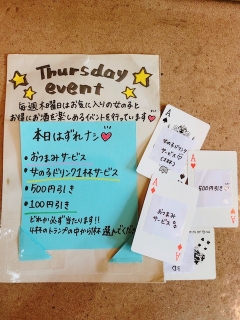 Thursday
event
毎週木曜日はお気に入りの女の子と
お得にお酒を楽しめるイベントを行っています♥
本日はずれナシ♥
• おつまみサービス
• 女の子ドリンク1杯サービス
• 500円引き
• 100円引き
どれか必ず当たります!!
4枚のトランプの中から1枚選んでくだ
A
女の子ドリンク
サービス
(1杯)
A
A
500円引き
A
おつまみ
サービス
A